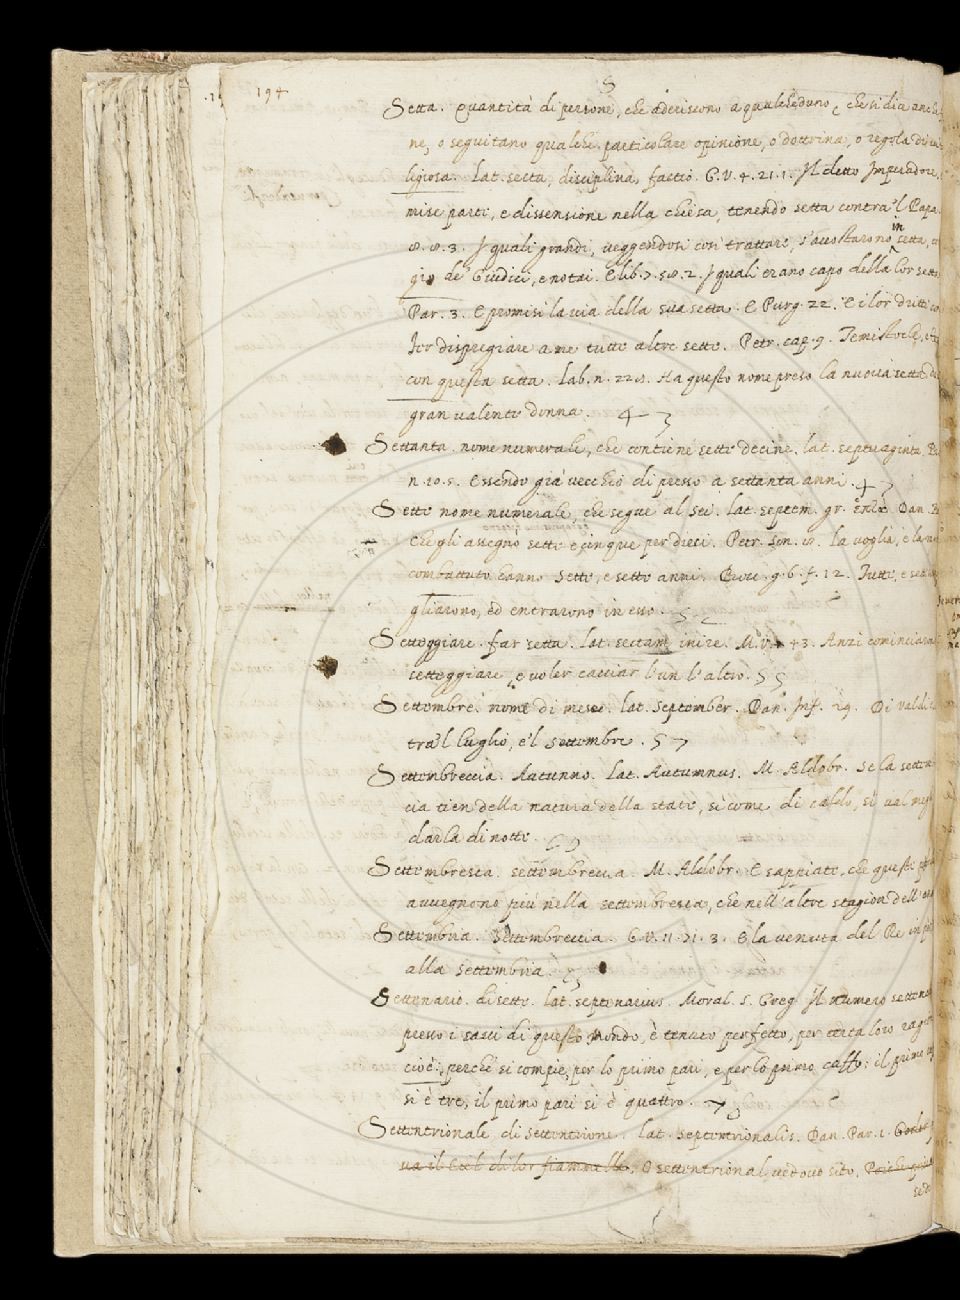 194
S
Setta. Quantità di persone, che aderiscono a qualcheduno, che si dica
ne, o seguitano qualche particolare opinione, o dottrina, o regola di
ligiosa. Lat. secta, disciplina, factio. G.V. 4. 21. 1. Il detto Imperadore,
mise parte, e dissensione nella chiesa, tenendo setta contra 'l Papa.
I quali grandi, veggendosi così trattare, s'accostarono in setta,
gio de' Giudici, e notai. E lib. 7. I quali erano capo della lor setta
Par. 3. E promisi la via della sua setta. E Purg. 22. E i lor dritti
Fer dispregiare a me tutte altre sette. Petr. cap. 9. Temistocle,
con questa setta. Lab. n. Ha questo nome preso la nuova setta
gran valente donna. 4 3
Settanta. nome numerale, che contiene sette decine. lat. septuaginta.
n. 10. 5. Essendo già vecchio di presso a settanta anni.
Sette nome numerale, che segue al sei. lat. septem. gr. Dan.
Che gli assegnò sette e cinque per dieci. Petr. Son. La voglia, e la
combattuto hanno sette, e sette anni. Bocc. g. 6. f. 12. Tutte, e sette
gliarono, ed entrarono in esso.
Setteggiare. far setta. lat. sectam inire. M.V. 43. Anzi cominciaro
setteggiare, e voler cacciar l'un l'altro. 5 5
Settembre. nome di mese. lat. September. Dan. Inf. 29. Di Valdi
tra 'l luglio, e 'l settembre. 5 7
Settembreccia. Autunno. Lat. Autumnus. M. Aldobr. Se la settem
cia tien della natura della state, sì come di caldo, sì val
darla di notte.
Settembresca. settembreccia. M. Aldobr. E sappiate, che queste
avvegnono più nella settembresca, che nell'altre stagion dell'
Settembria. Settembreccia. G.V. 11. 21. 3. E la venuta del Re in
alla settembria.
Settenario. di sette. lat. septenarius. Moral. S. Greg. Il numero settena
presso i savi di questo mondo, è tenuto perfetto, per certa loro
cioè: perchè si compie, per lo primo pari, e per lo primo caffo: il primo
si è tre, il primo pari si è quattro.
Settentrionale di settentrione. lat. septentrionalis. Dan. Par. 1.
va il Ciel di lor fiammelle, O settentrional vedovo sito.